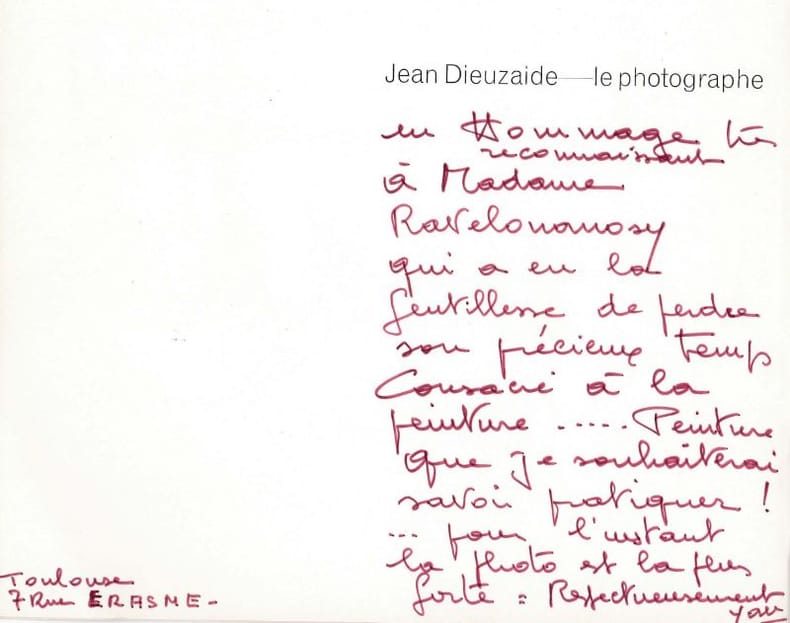 Jean Dieuzaide — le photographe
en Hommage très
reconnaissant
à Madame
Ravelonanosy
qui a eu la
gentillesse de perdre
son précieux temps
Consacré à la
peinture ..... Peinture
que je souhaiterai
savoir pratiquer !
... pour l'instant
la photo est la plus
forte : Respectueusement
Yan
Toulouse
7 Rue ERASME -